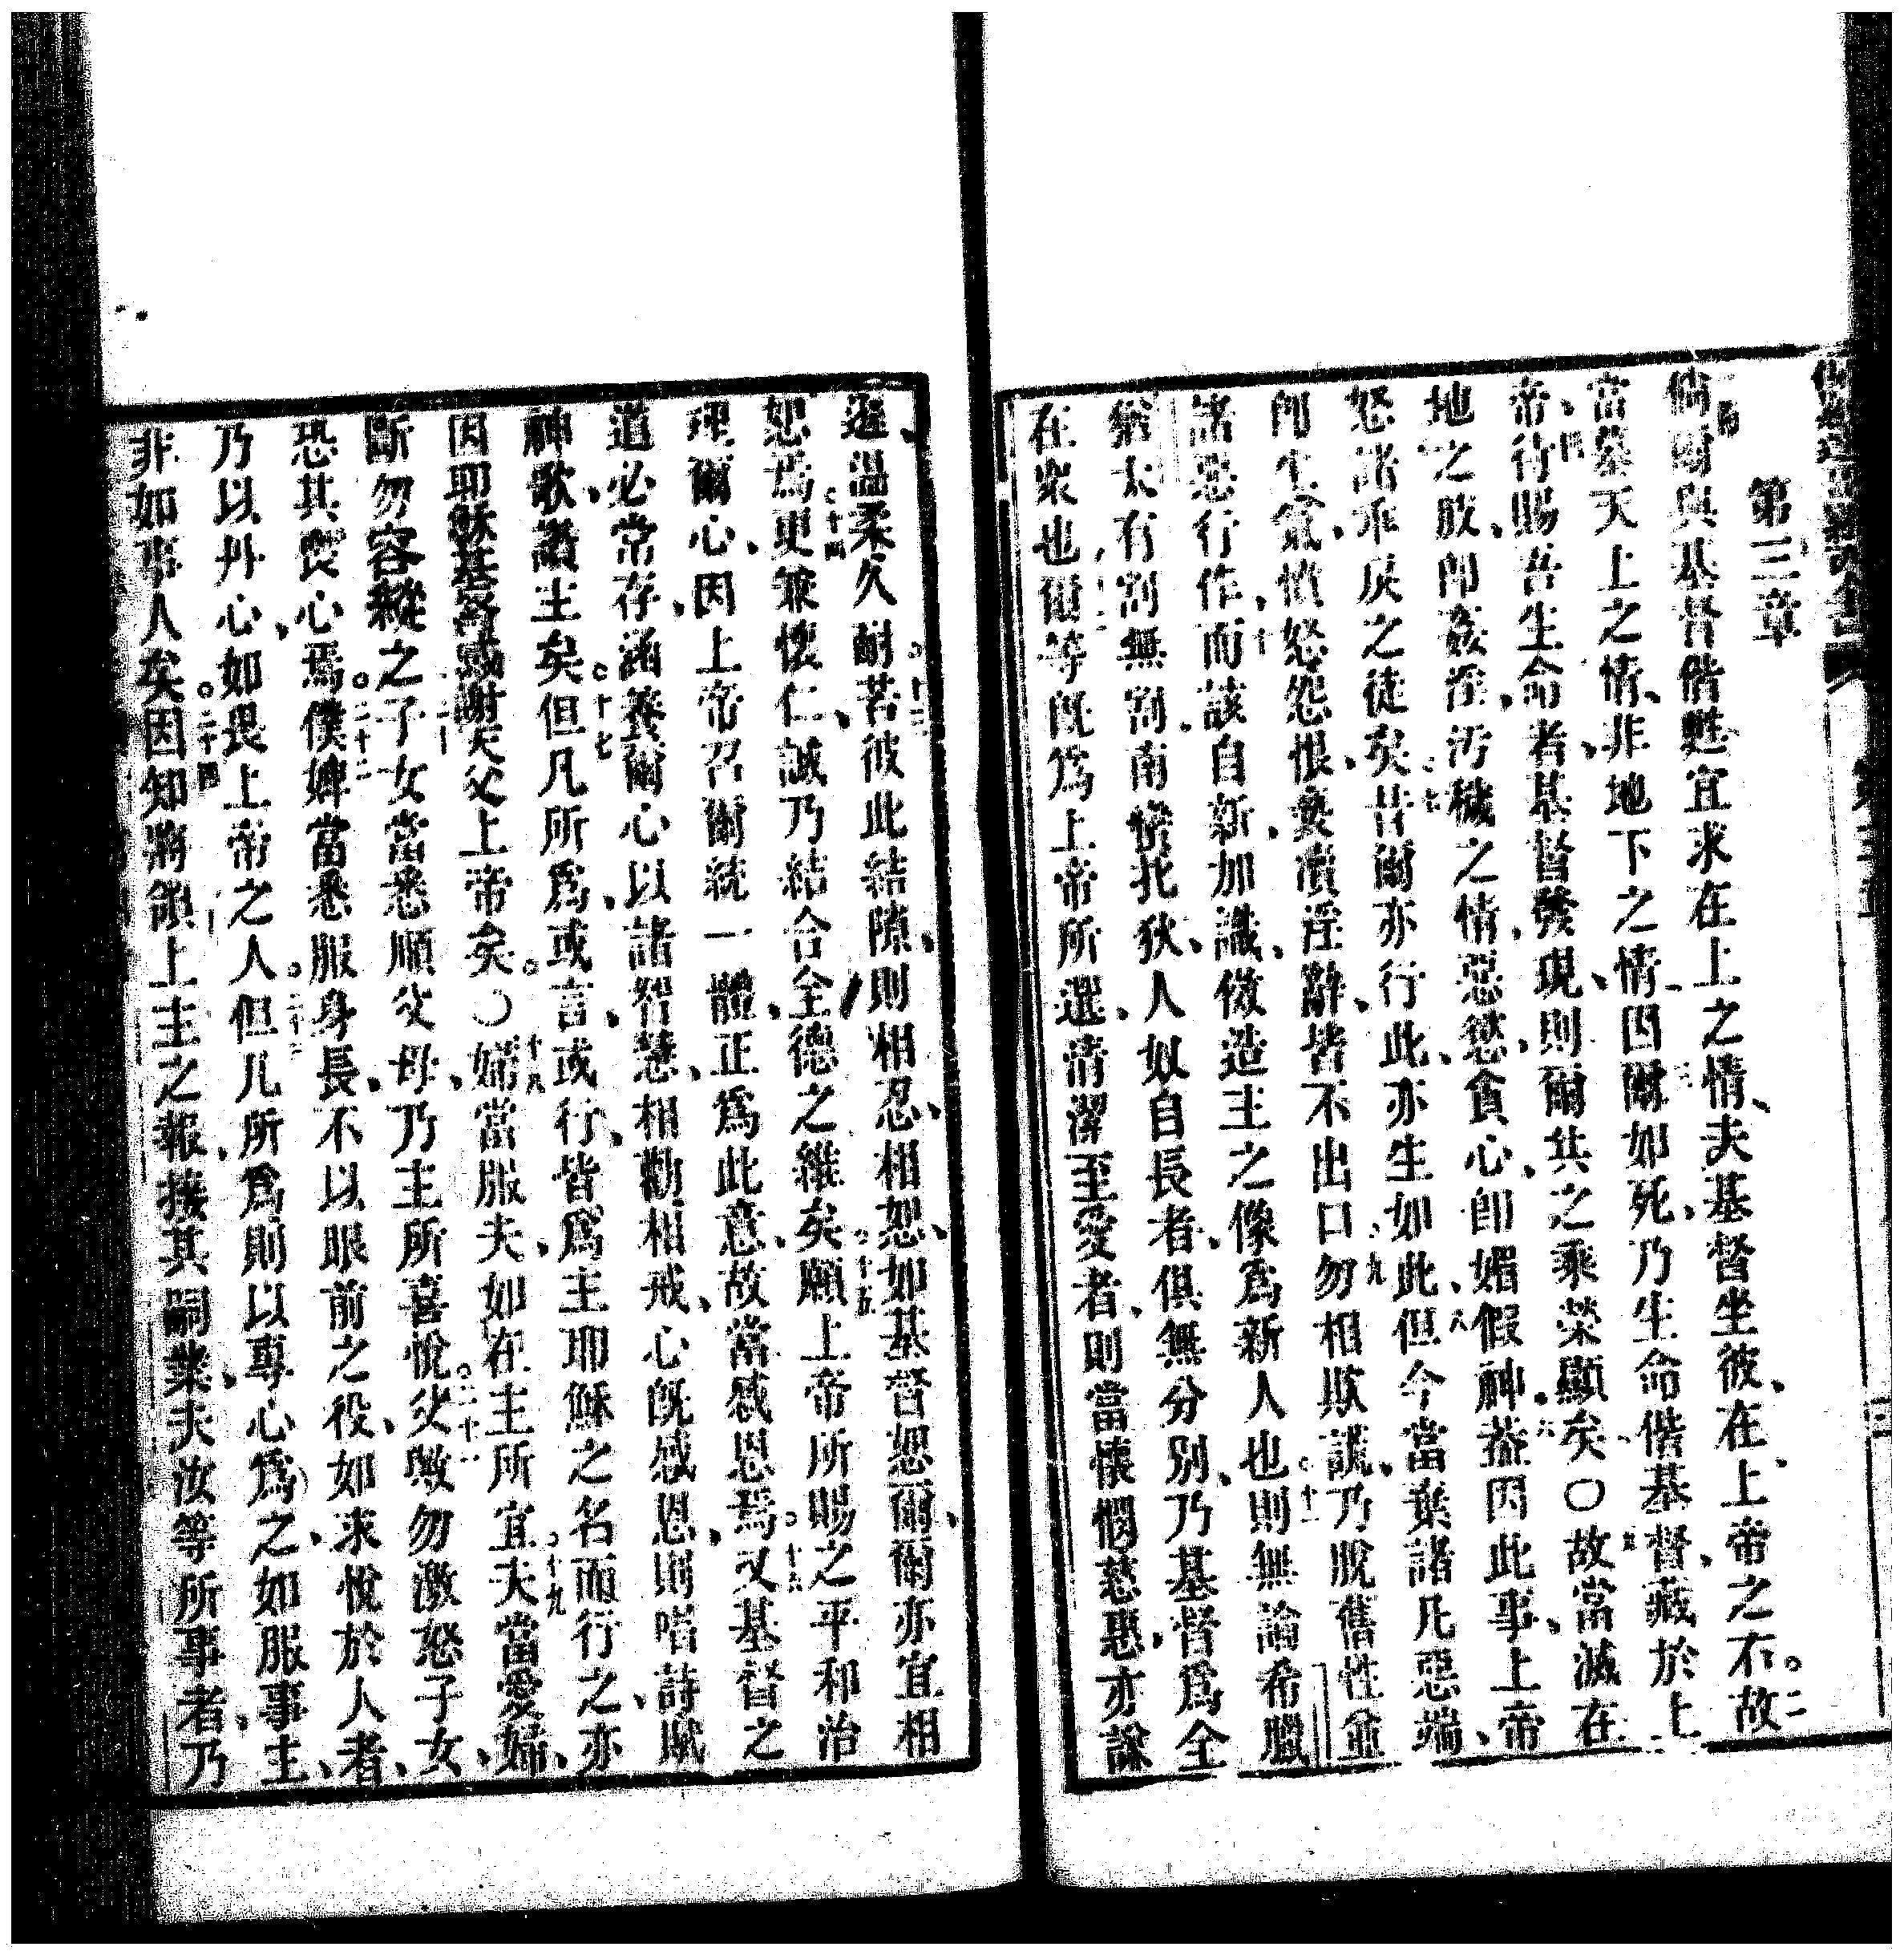 第三章
倘爾與基督偕甦宜求在上之情、夫基督坐彼、在上帝之右。二故
當慕天上之情、非地下之情三因爾如死、乃生命偕基督、藏於上
帝、四待賜吾生命者、基督發現、則爾共之乘榮顯矣〇五故當滅在
地之肢、卽姦淫、汚穢之情、惡慾、貪心、卽媚假神。六葢因此事、上帝
怒諸乖戾之徒矣七昔爾亦行此、亦生如此、八但今當棄諸凡惡端、
卽生氣、憤怒怨恨、褻瀆淫辭、皆不出口九勿相欺謊、乃脫舊性並
諸惡行作、十而該自新、加識、倣造主之像爲新人也。十一則無論希臘
猶太有割無割、南蠻北狄、人奴自長者、俱無分別、乃基督爲全
在衆也、十二爾等旣爲上帝所選、清潔至愛者、則當懷憫慈惠、才謙
遜、温柔久耐。十三若彼此結隙、則相忍、相恕、如基督恕爾、爾亦宜相
恕焉。十四更兼懷仁、誠乃結合全德之維矣。十五願上帝所賜之平和治
理爾心、因上帝召爾統一體、正爲此意、故當感恩焉。十六又基督之
道必常存、涵養爾心以諸智慧、相勸相戒、心旣感恩、則唱詩賦
神歌、讚主矣。十七但凡所爲、或言、或行、皆爲主耶穌之名而行之、亦
因耶穌基督感謝天父上帝矣。〇十八婦當服夫、如在主所宜。十九夫當愛婦、
斷勿容縱之二十子女當悉順父母、乃主所喜悅。二十一父嫩勿激怒子女、
恐其喪心焉。二十二僕婢當悉服身長、不以眼前之役、如求悅於人者、
乃以丹心、如畏上帝之人。二十三但凡所爲則以專心爲之、如服事主、
非如事人矣。二十四因知將領上主之報、接其嗣業、夫汝等所事者、乃